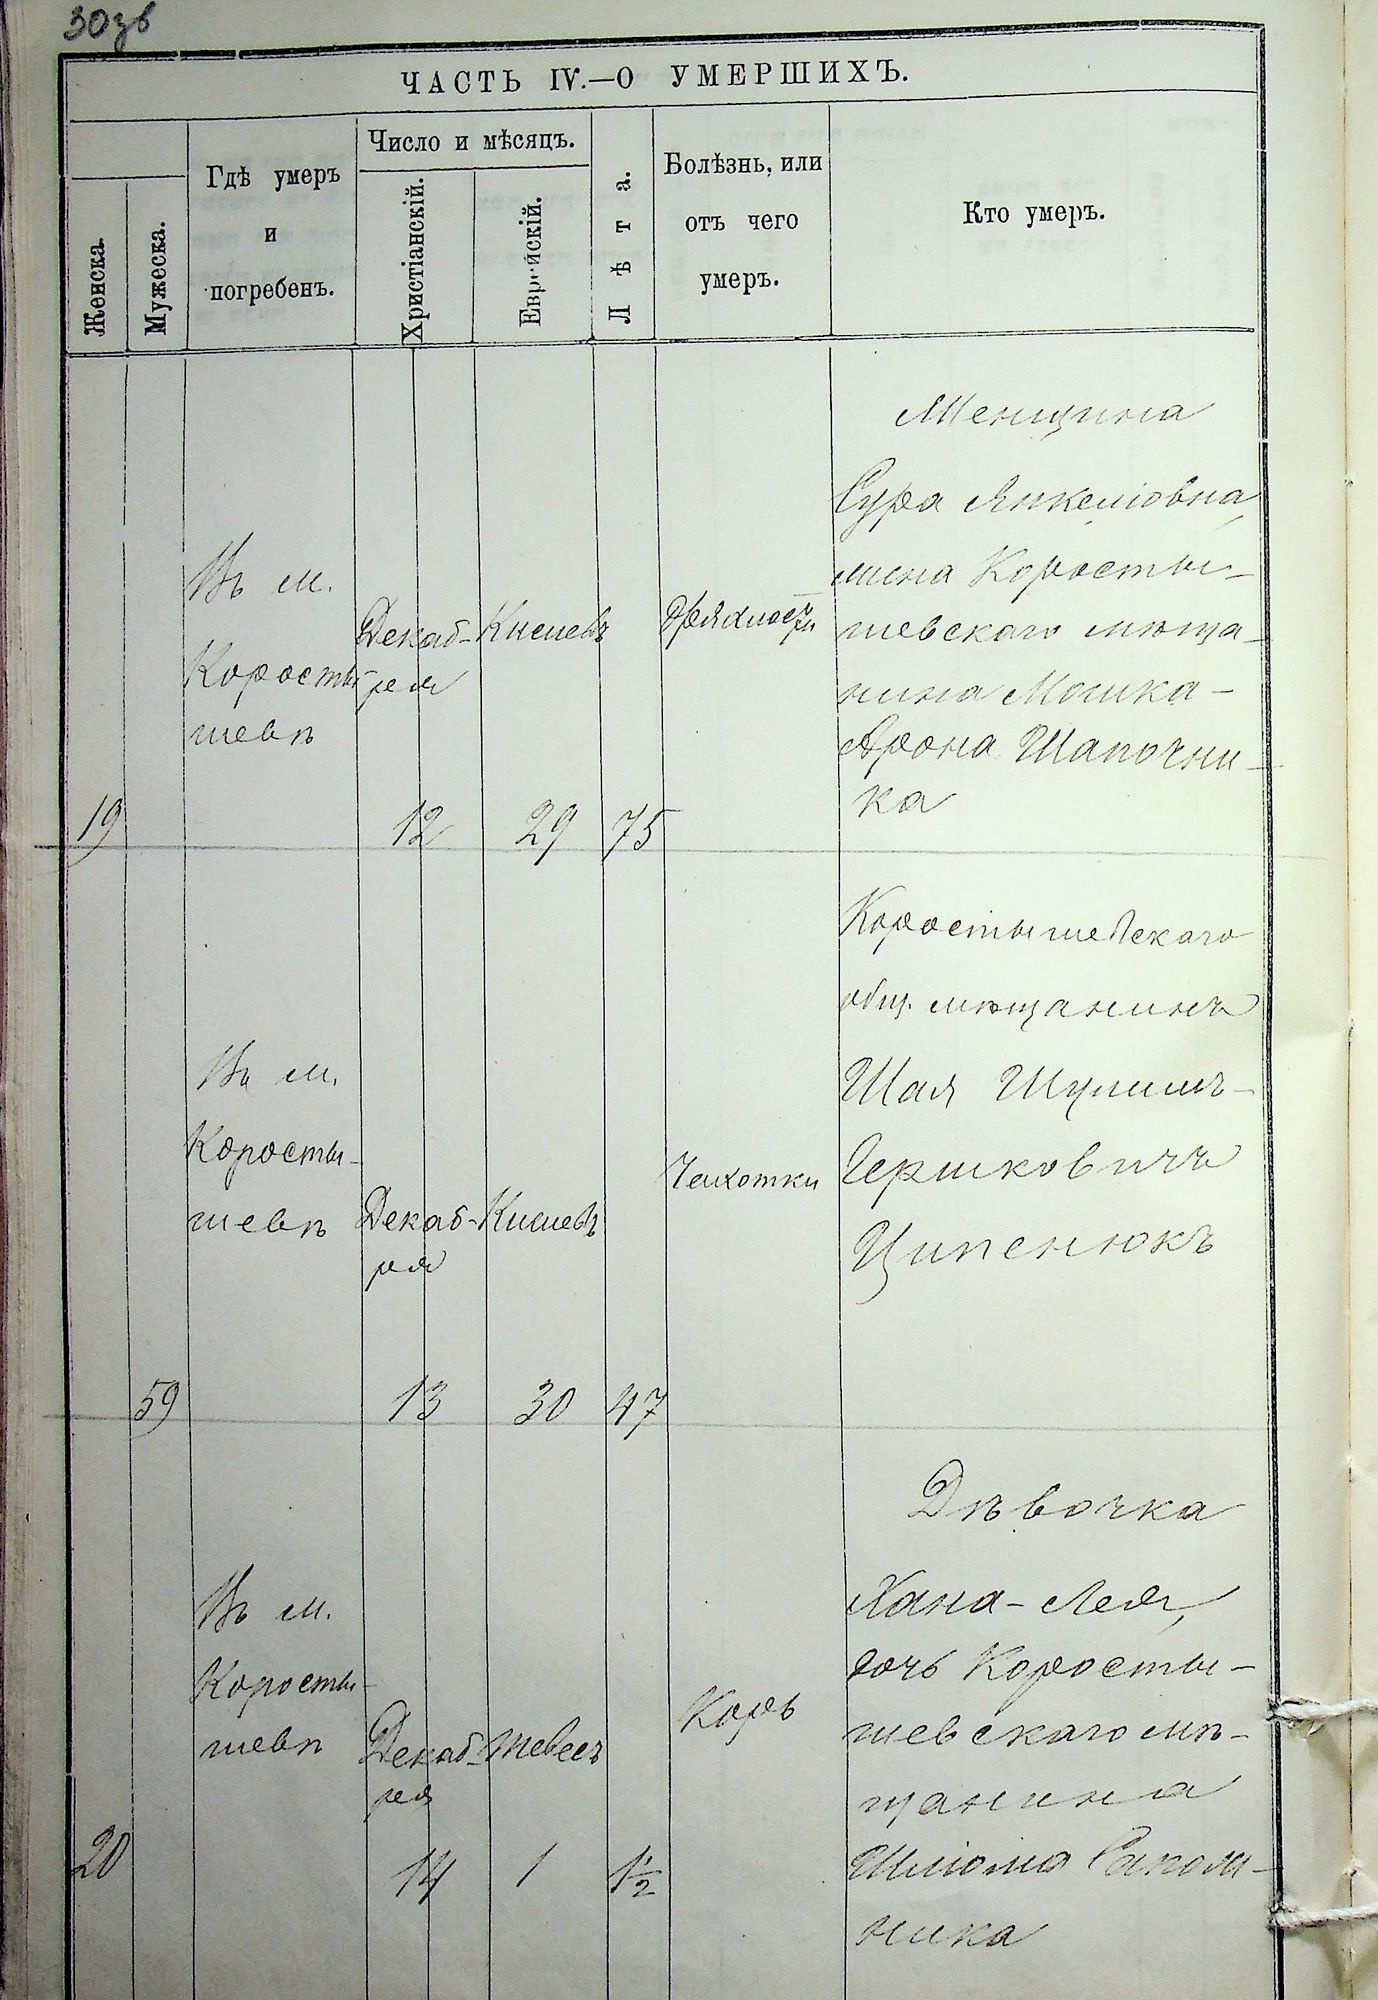 30зв
ЧАСТЬ IV.—О УМЕРШИХЪ.
Женска.
Мужеска.
Гдѣ умеръ
и
погребенъ.
Число и мѣсяцъ.
Христіанскій.
Еврейскій.
Лѣта.
Болѣзнь, или
отъ чего
умеръ.
Кто умеръ.
19
Въ м.
Коросты-
шевѣ
Декаб-
ря
12
Кислевъ
29
75
Дряхлости
Женщина
Сура Янкелiовна,
жена Косты-
шевскаго мѣща-
нина Мошка-
Арона Шапочни-
ка
59
Въ м.
Коросты-
шевѣ
Декаб-
ря
13
Кислевъ
30
47
Чахотки
Коростышевскаго
общ. мѣщанинъ
Шая Шулимъ-
Гершковичъ
Ципенюкъ
20
Въ м.
Коросты-
шевѣ
Декаб-
ря
14
Тевесъ
1
1½
Корь
Дѣвочка
Хана-Лея,
дочь Коросты-
шевскаго мѣ-
щанина
Шлiома Сакол-
ника